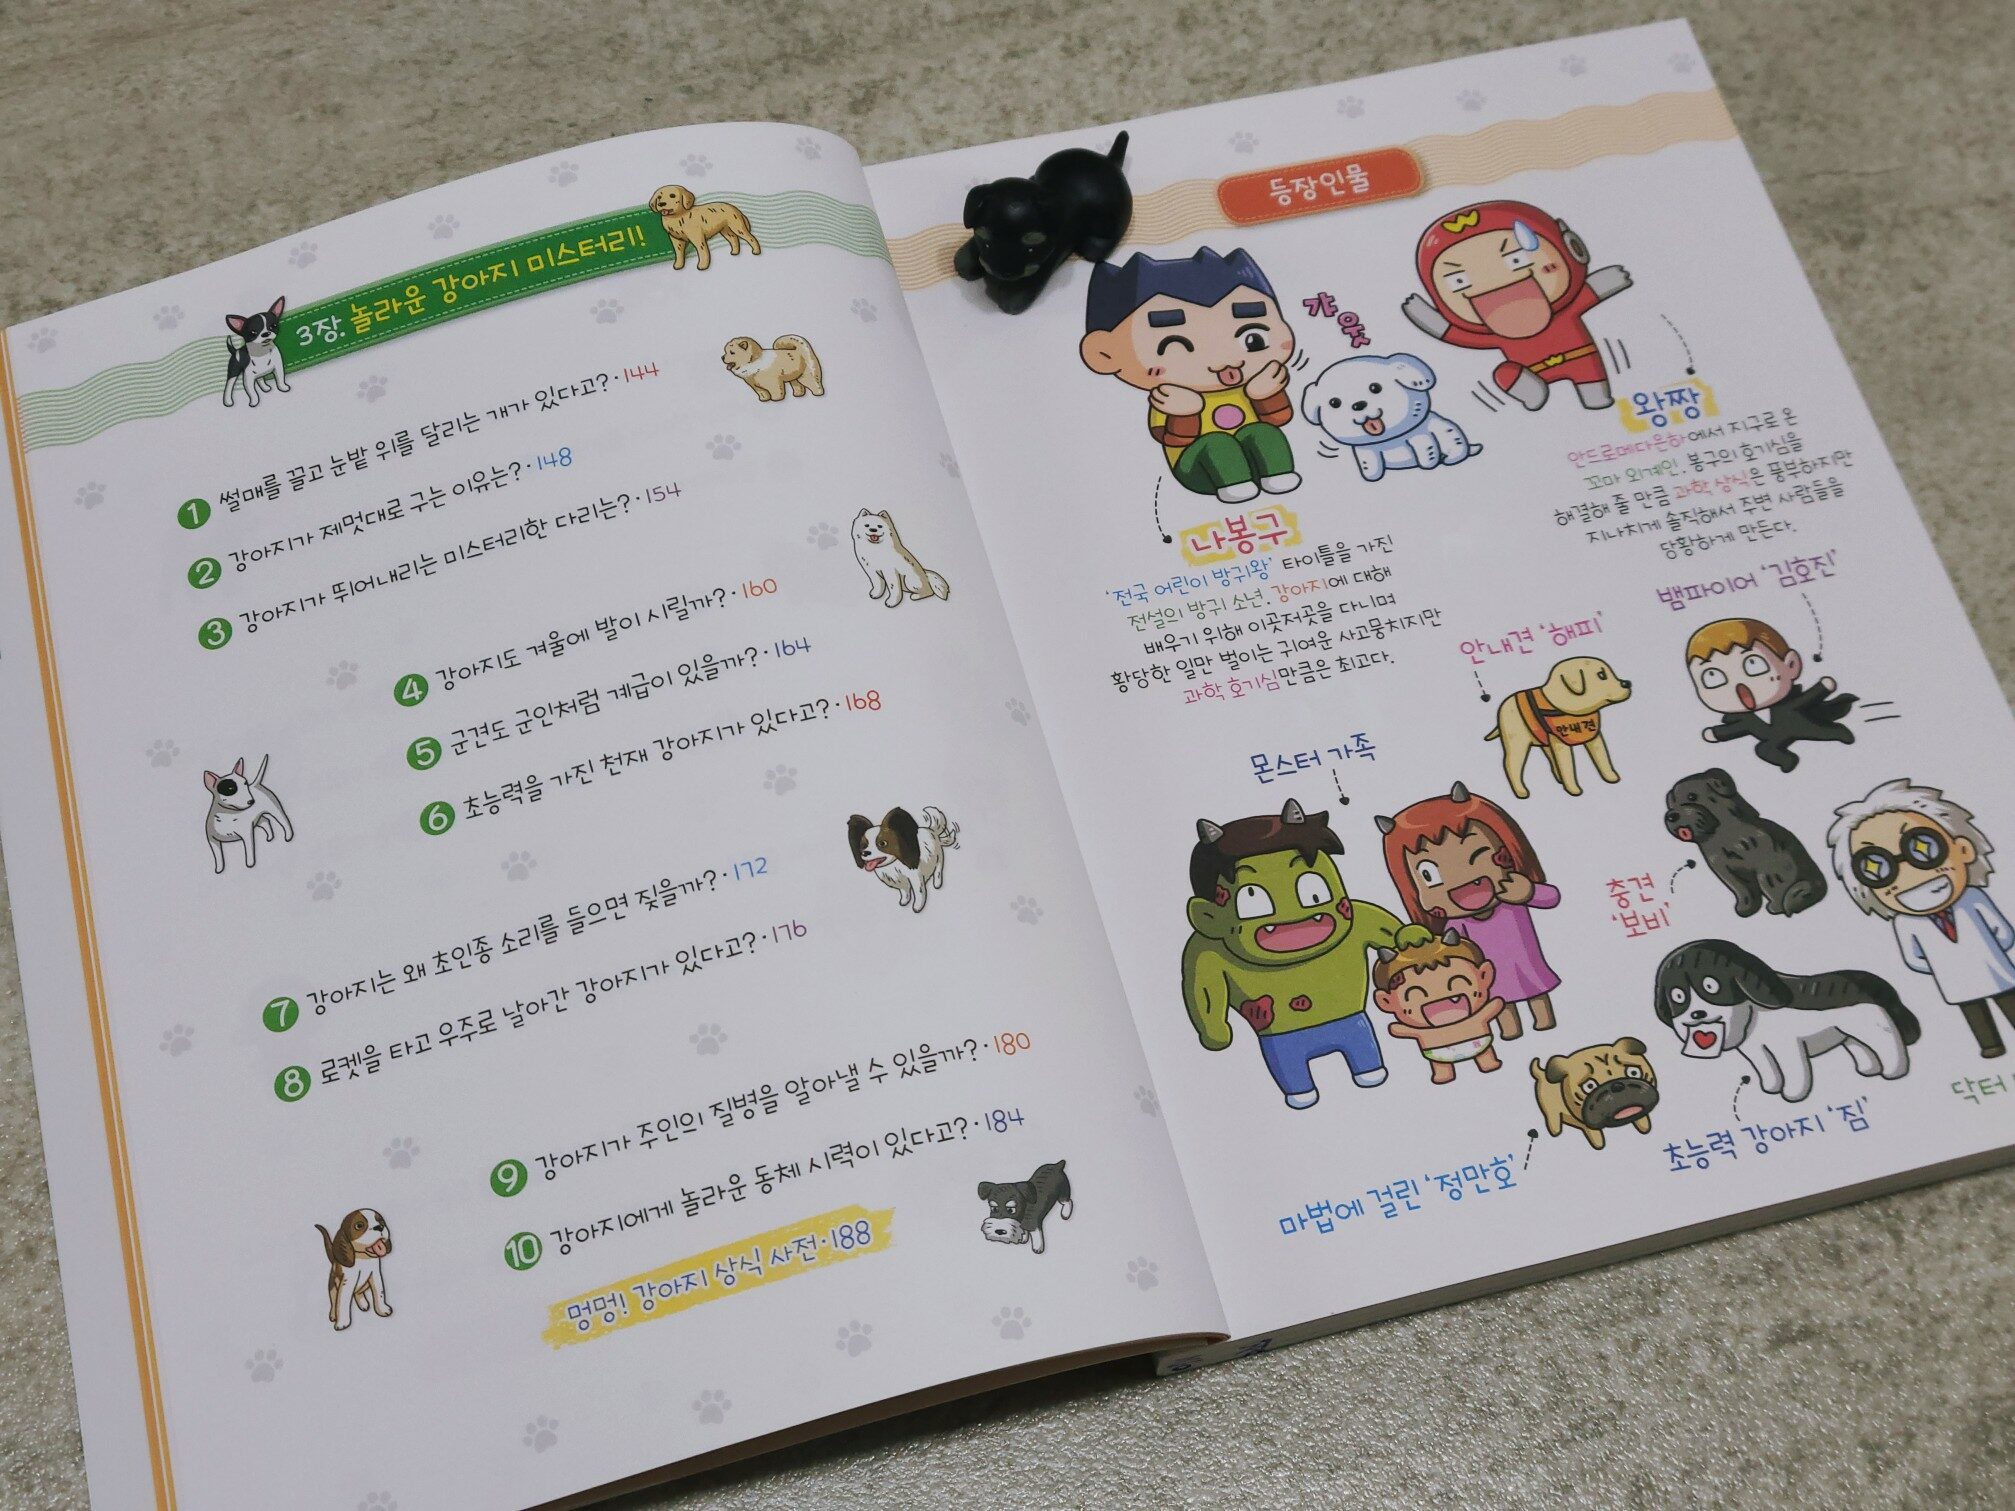 3장. 놀라운 강아지 미스터리!
1 썰매를 끌고 눈밭 위를 달리는 개가 있다고?·144
2 강아지가 제멋대로 구는 이유는?·148
3 강아지가 뛰어내리는 미스터리한 다리는?·154
4 강아지도 겨울에 발이 시릴까?·160
5 군견도 군인처럼 계급이 있을까?·164
6 초능력을 가진 천재 강아지가 있다고?·168
7 강아지는 왜 초인종 소리를 들으면 짖을까?·172
8 로켓을 타고 우주로 날아간 강아지가 있다고?·176
9 강아지가 주인의 질병을 알아낼 수 있을까?·180
10 강아지에게 놀라운 동체 시력이 있다고?·184
멍멍! 강아지 상식 사전·188
등장인물
갸웃
나봉구
'전국 어린이 방귀왕' 타이틀을 가진
전설의 방귀 소년. 강아지에 대해
배우기 위해 이곳저곳을 다니며
황당한 일만 벌이는 귀여운 사고뭉치지만
과학 호기심만큼은 최고다.
왕짱
안드로메다은하에서 지구로 온
꼬마 외계인. 봉구의 호기심을
해결해 줄 만큼 과학 상식은 풍부하지만
지나치게 솔직해서 주변 사람들을
당황하게 만든다.
안내견 '해피'
안내견
뱀파이어 '김호진'
몬스터 가족
충견
'보비'
마법에 걸린 '정만호'
초능력 강아지 '짐'
닥터